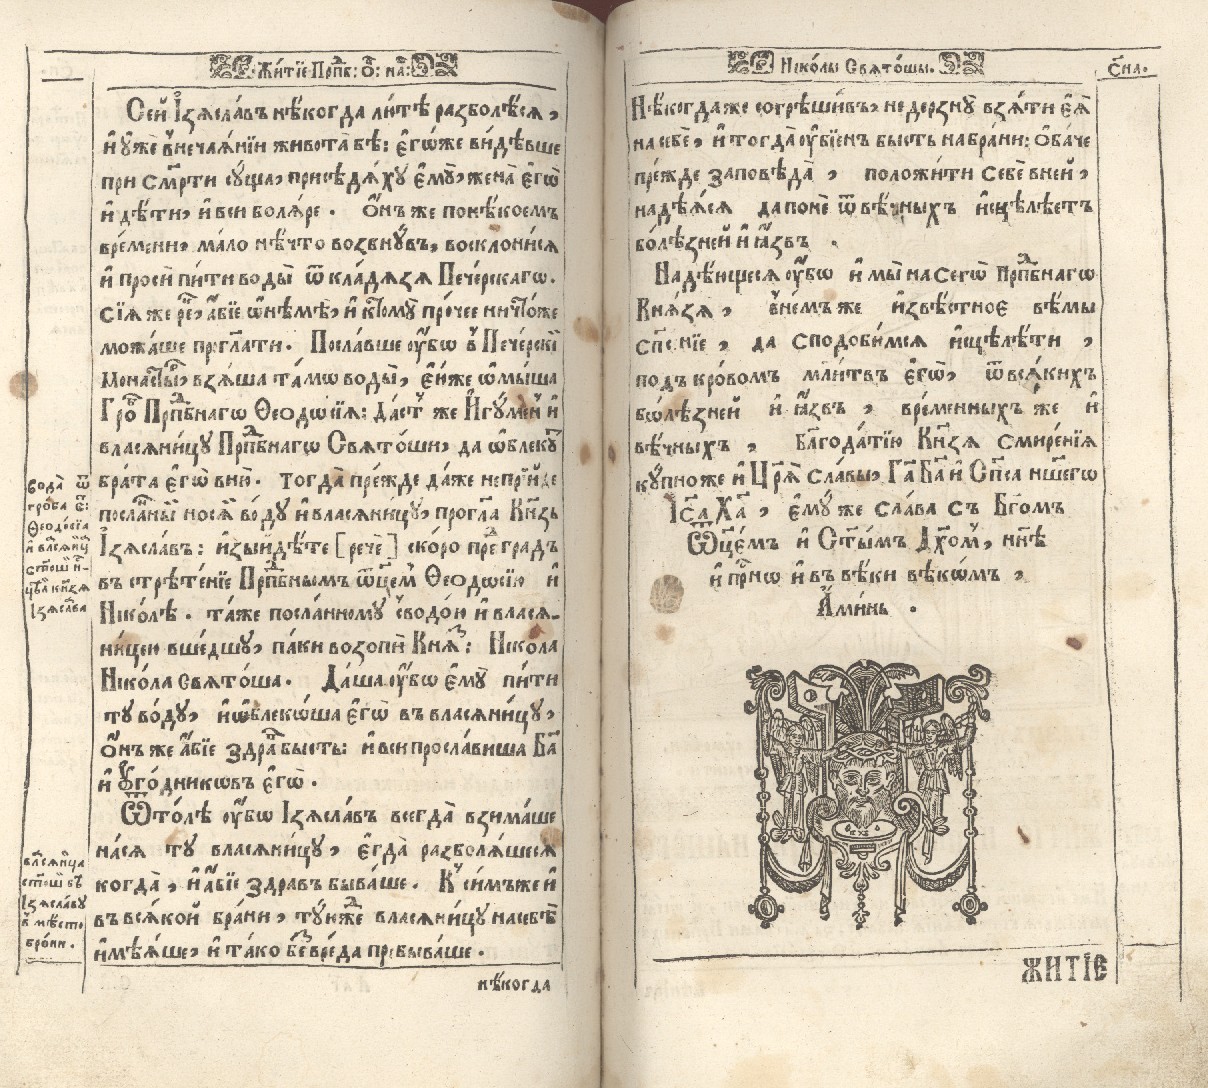 Житїе Прпⷣб: Оц҃: на́:
Сей І҆зѧсла́въ нѣ́когда лю́тѣ разболѣ́сѧ,
и҆ ᲂу҆жѐ в̾неча́ѧнїи живота̀ бѣ̀: є҆го́же ви́дѣвше
при см҃рти сꙋ́ща, присѣдѧ́хꙋ є҆мꙋ̀, жена̀ є҆гѡ̀
и҆ дѣ́ти, и҆ вси болѧ́ре. Ѻ҆́нъ же по нѣ́коемъ
вре́мени, ма́ло нѣ́что возбнꙋ́въ, восклони́сѧ
и҆ проси̂ пи́ти воды̀ ѿ кла́дѧзѧ Пече́рскагѡ.
сїѧ̑ же ре́къ, а҆́бїе ѡ҆нѣмѣ̀, и҆ ктомꙋ̀ про́чее ничто́же
можа́ше прогл҃ати. Посла́вше ᲂу҆̀бѡ в̾ Пече́рскї
Монасты́рь, взѧ́ша та́мѡ воды̀, є҆́йже ѡ҆мы́ша
Гро́бъ Прпⷣбнагѡ Ѳеодѡ́сїѧ: да́стъ же И҆гꙋ́менъ и҆
власѧни́цꙋ Прпⷣбнагѡ Свѧто́ши, да ѡ҆блекꙋ́тъ
бра́та є҆гѡ̀ в̾ню̀. тогда̀ пре́жде да́же не прїи́де
посла́нный носѧ̀ во́дꙋ и҆ власѧни́цꙋ, прогл҃а Кн҃зь
І҆зѧсла́въ: и҆зыйдѣ́те [речѐ] ско́ро преⷣ гра́дъ
въ стрѣ́тенїе Прпⷣбнымъ ѻ҆ц҃е́мъ Ѳеодѡ́сїю и҆
Нїко́лѣ. та́же посла́нномꙋ с̾водо́ю и҆ власѧ-
ни́цею вше́дшꙋ, па́ки возопѝ Кн҃ѧзь: Нїко́ла
Нїко́ла Свѧто́ша. Да́ша ᲂу҆̀бѡ є҆мꙋ̀ пи́ти
тꙋ̀ во́дꙋ, и҆ ѡ҆блеко́ша є҆гѡ̀ въ власѧни́цꙋ,
ѻ҆́нъ же а҆́бїе здра́въ бы́сть: и҆ вси просла́виша Бг҃а
и҆ ᲂу҆го́дникѡвъ є҆гѡ̀.
Ѿто́лѣ ᲂу҆̀бѡ І҆зѧсла́въ всегда̀ взима́ше
на сѧ̀ тꙋ̀ власѧни́цꙋ, є҆гда̀ разболѧ́шесѧ
когда̀, и҆ а҆́бїе здра́въ быва́ше. К̾ си́мъ же и҆
въ всѧ́кой бра́ни, тꙋ́южде власѧни́цꙋ на себѣ̀
и҆мѣ́ѧше, и҆ та́кѡ без̾ вре́да пребыва́ше.
нѣ́когда
вода̀ ѿ
гро́ба П:
Ѳеодо́сїѧ
и҆ влⷭ҇ѧни́ц
Ст҃оши и҆-
цѣлѝ кн҃зѧ
І҆зѧсла́ва
влⷭ҇ѧни́ца
ст҃оши бѣ̀
І҆зѧсла́вꙋ
в̾ мѣ́сто
брони̂.
Нїко́лы Свѧто́шы.
Сн҃а.
Нѣ́когда же согрѣши́въ, не дерзнꙋ̀ взѧ́ти є҆ѧ̀
на себѐ, и҆ тогда̀ ᲂу҆бїе́нъ бы́сть на бра́ни: Ѻ҆ба́че
пре́жде заповѣ́да, положи́ти себѐ в̾ней,
надѣ́ѧсѧ да понѐ ѿ вѣ́чныхъ и҆сцѣлѣ́етъ
болѣ́зней и҆ ꙗ҆́звъ.
Надѣ́ющесѧ ᲂу҆̀бѡ и҆ мы̀ на сегѡ̀ Прпⷣбнагѡ
Кнѧ́зѧ, ѡ҆ не́мъ же и҆звѣ́стное вѣ́мы
сп҃се́нїе, да сподоби́мсѧ и҆сцѣлѣ́ти,
подъ кро́вомъ мл҃и́твъ є҆гѡ̀, ѿ всѧ́кихъ
болѣ́зней и҆ ꙗ҆́звъ, вре́менныхъ же и҆
вѣ́чныхъ, бл҃года́тїю Кн҃зѧ смире́нїѧ
кꙋ́пно же и҆ Цр҃ѧ̀ сла́вы, Гд҃а Бг҃а и҆ Сп҃са нш҃егѡ
І҆с҃а Хр҃та̀, є҆мꙋ́же сла́ва съ Бг҃омъ
Ѻ҆ц҃е́мъ и҆ Ст҃ы́мъ Дх҃омъ, нн҃ѣ
и҆ при́снѡ и҆ въ вѣ́ки вѣкѡ́мъ,
А҆ми́нь.
ЖИТЇЕ